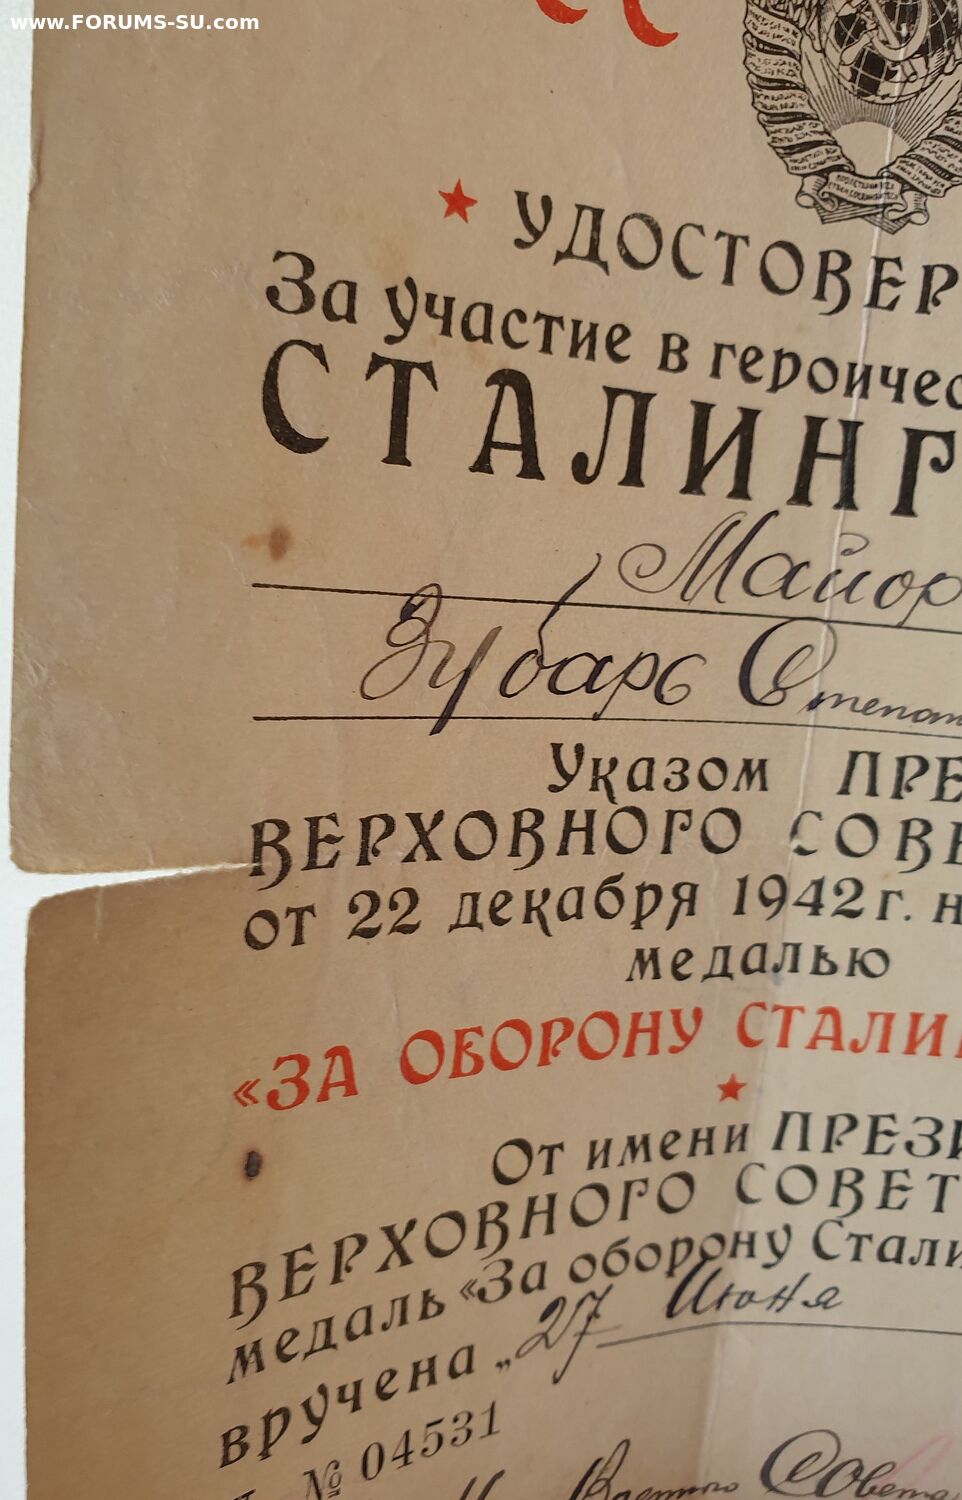 www.FORUMS-SU.com
УДОСТОВЕР
За участие в героичес
СТАЛИНГ
Майор
Зубарь Степан
Указом ПРЕ
ВЕРХОВНОГО СОВЕ
от 22 декабря 1942 г. н
медалью
«ЗА ОБОРОНУ СТАЛИН
От имени ПРЕЗИ
ВЕРХОВНОГО СОВЕТ
медаль «За оборону Стали
вручена „27 Июня
№ 04531
Военного Совета